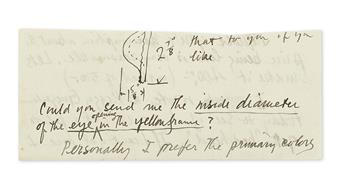 2 7/8
that to you if you
like
5/8
Could you send me the inside diameter
of the eye opening in the yellow frame ?
Personally I prefer the primary colors